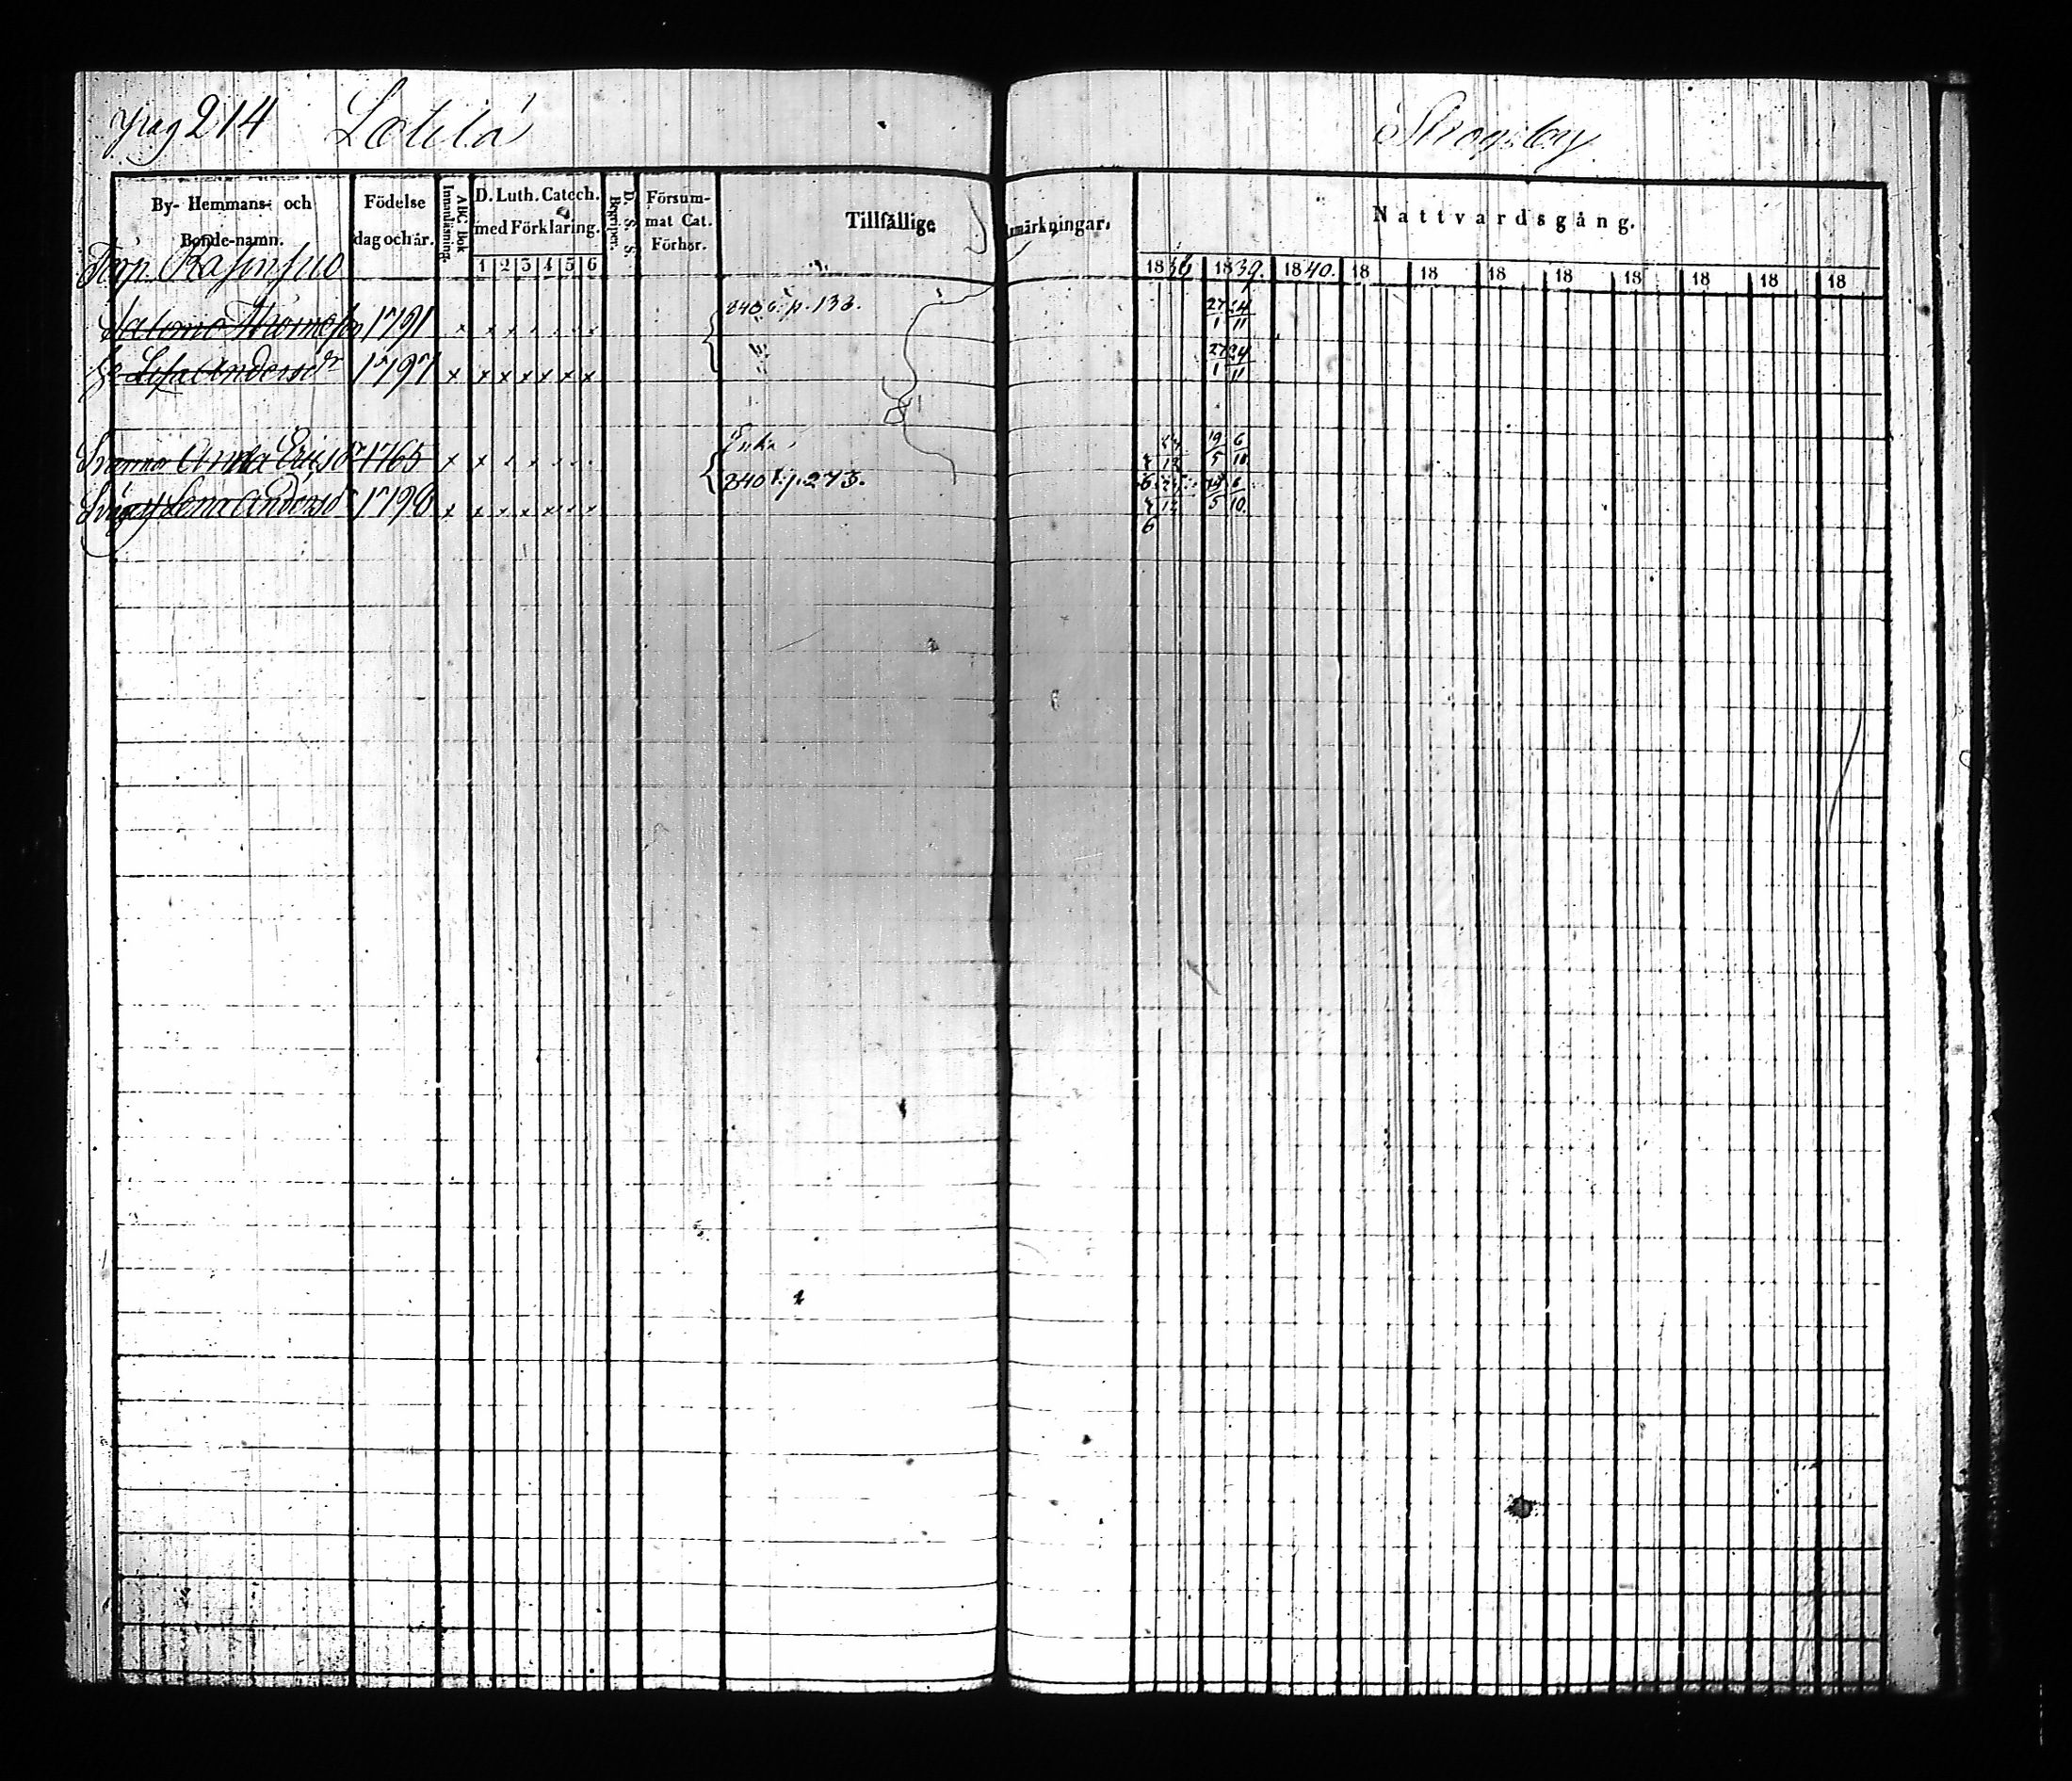 pag 214 Lotila Skogsby
By- Hemmans- och Bonde-namn. Födelse dag och år. ABC Bok Innanläsning. D. Luth. Catech. med Förklaring. 1 2 3 4 5 6 D. S. S. Begriper. Försum-mat Cat. Förhör. Tillfällige Anmärkningar. Nattvardsgång.
1836 1839. 1840. 18 18 18 18 18 18 18 18
Torp.
Salomo Thomasson 1791 x x x 840 p. 133. 27/1 24/11
Lisa Andersdr 1797 x x x x x x x 27/1 24/11
Anna Ericsdr 1765 x x Enka 19/5 6/10
Lena Andersdr 1796 x x x x x x x 840 p. 273. 19/5 6/10.
6